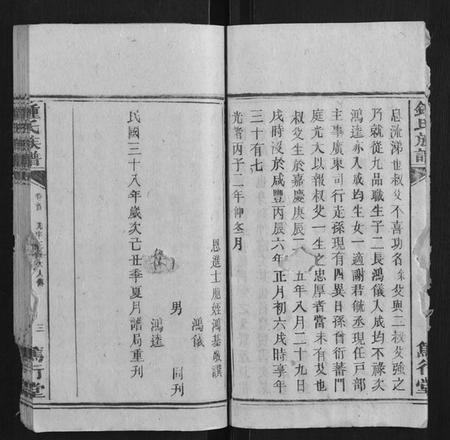 鍾氏族譜
篤行堂
息流涕也叔父不喜功名
父與二叔父強之
乃就從九品職生子二長鴻儀入成均不祿次
鴻逵亦入成均生女一適謝君
丞現任戶部
主事廣東司行走孫現有四異日孫曾衍蕃門
庭光大以報叔父一生之忠厚者當未有艾也
叔父生於嘉慶庚辰
五年八月二十九日
戌時沒於咸豐丙辰六年正月初六戌時享年
三十有七
光緒丙子二年仲冬月
恩進士
姪鴻基敬譔
男
鴻儀
鴻逵
同刋
民國三十八年歲次己丑季夏月譜局重刊
鍾氏族譜
卷首
三
篤行堂